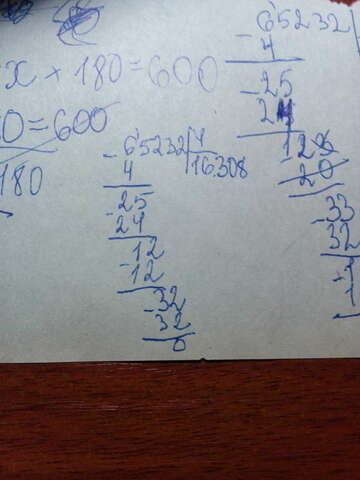 x + 180 = 600
0 = 600
180
- 65232 | 4
4 | 16.308
- 25
24
- 12
12
- 32
32
0
- 65232
4
- 25
24
- 33
32